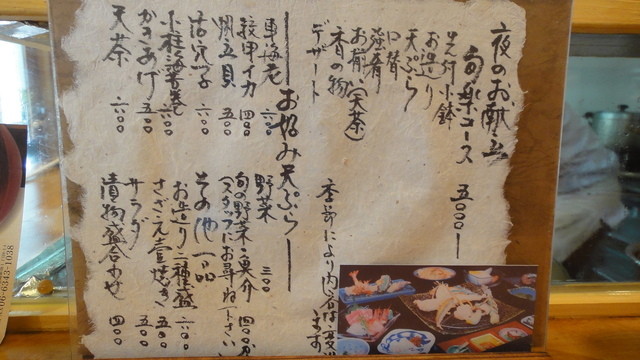 夜のお献立
旬楽コース 五〇〇〇
先付 小鉢
お造り
天ぷら
口替
強肴
お揃い(天茶)
香の物
デザート
季節により内容は変
ります
お好み天ぷら
車海老 六〇〇
紋甲イカ 四〇〇
帆立貝 五〇〇
活穴子 八〇〇
小柱海苔巻 六〇〇
かきあげ 五〇〇
天茶 六〇〇
野菜 三〇〇
旬の野菜・魚介 四〇〇から
(スタッフにお尋ね下さい)
その他一品
お造り二種盛 六〇〇
さざえ壺焼き 五〇〇
サラダ 五〇〇
漬物盛合わせ 四〇〇
06-6343-1038